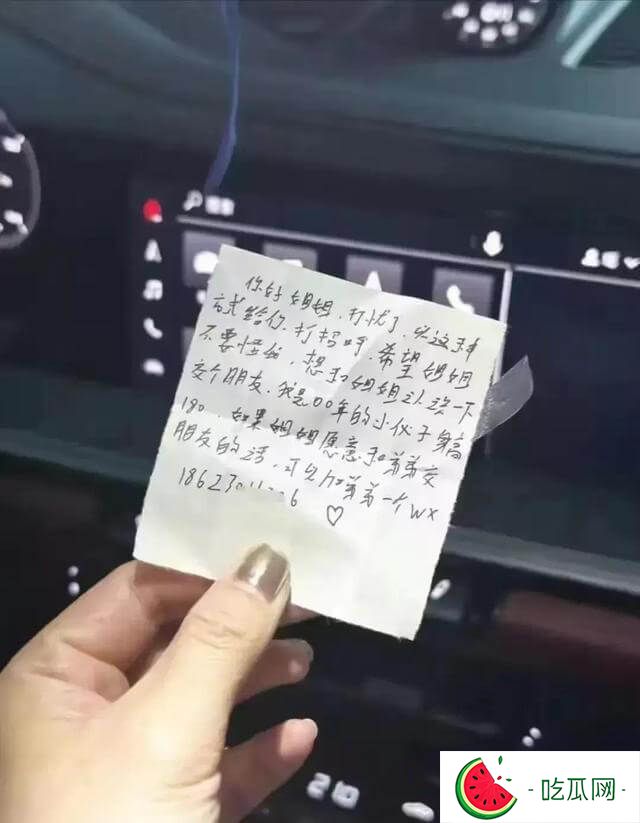 你好姐姐，打扰了，以这种
方式给你打招呼，希望姐姐
不要怪我，想和姐姐认识一下
交个朋友，我是00年的小伙子身高
180，如果姐姐愿意和弟弟交
朋友的话，可以加弟弟一个WX
18623 6 ♡
210
吃瓜网